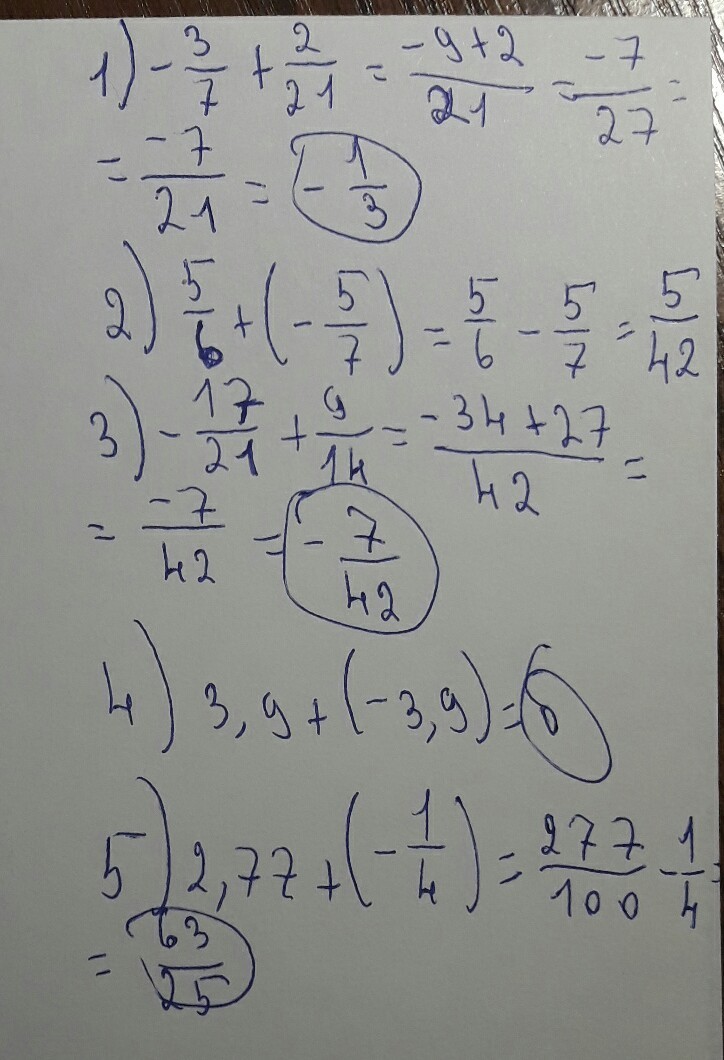 1) -3/7 + 2/21 = -9+2/21 = -7/27 =
= -7/21 = -1/3
2) 5/6 + (-5/7) = 5/6 - 5/7 = 5/42
3) -17/21 + 9/14 = -34+27/42 =
= -7/42 = -7/42
4) 3,9 + (-3,9) = 0
5) 2,77 + (-1/4) = 277/100 - 1/4 =
= 63/25